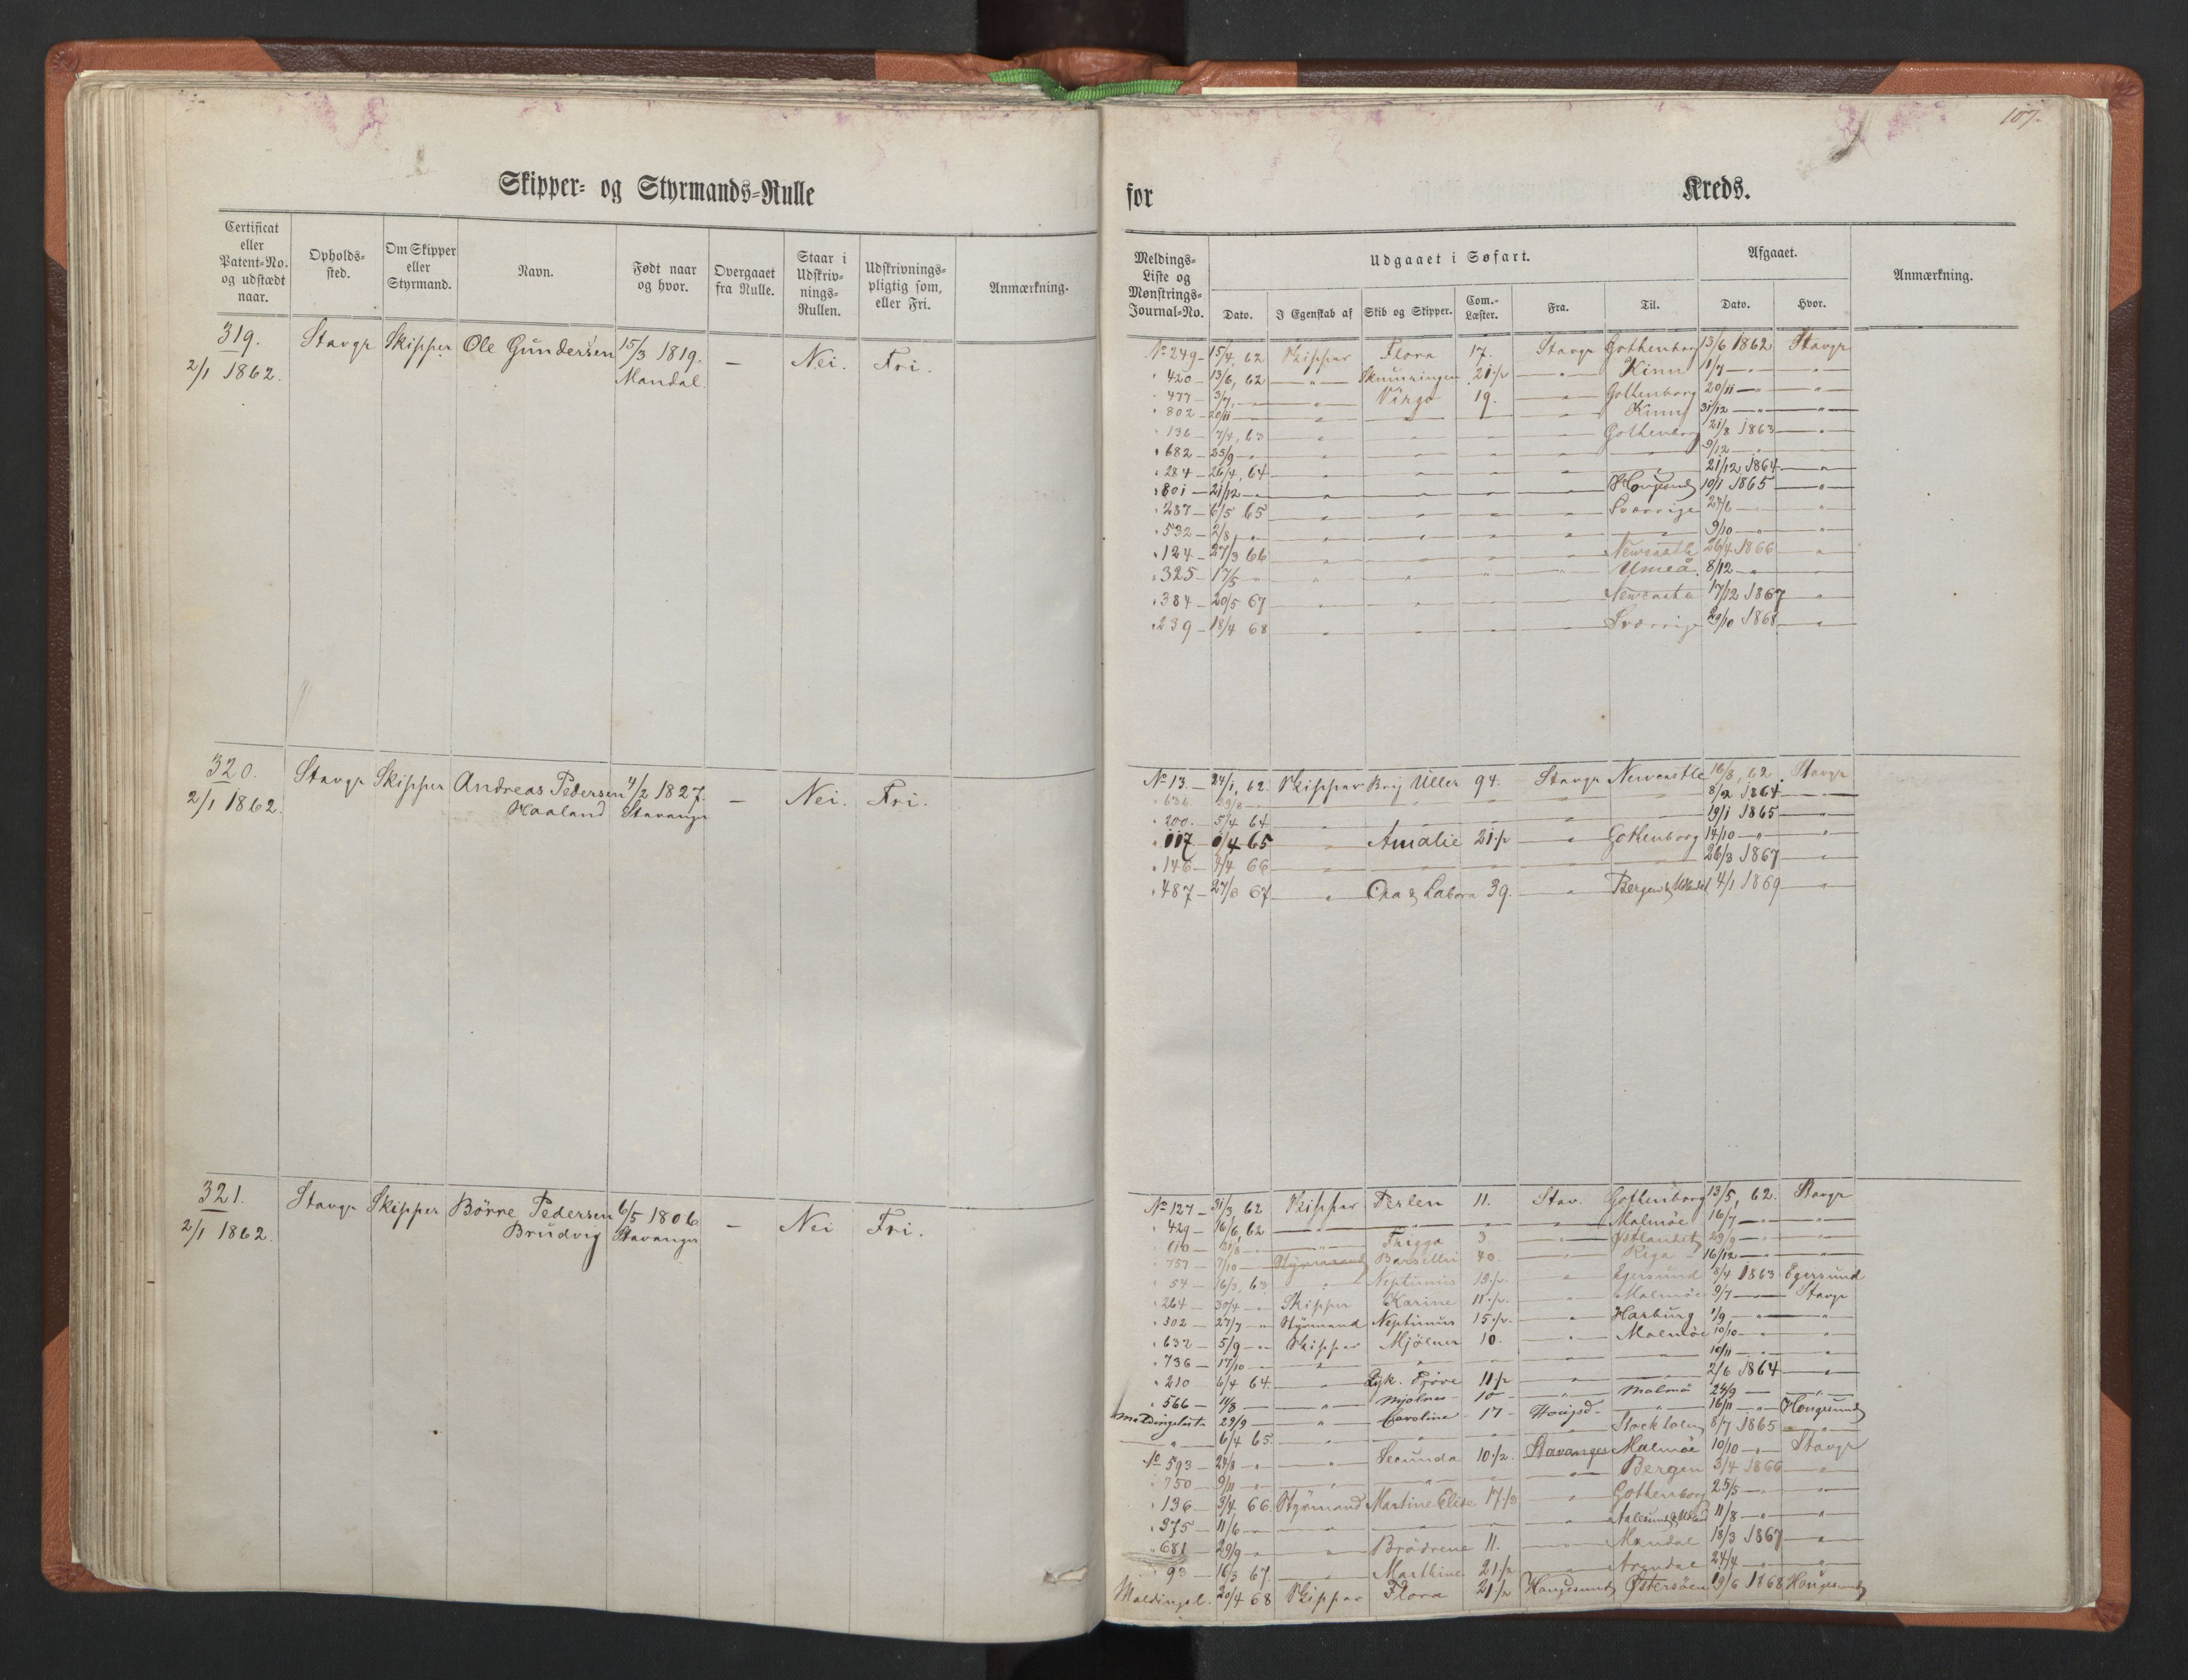 107.
Skipper- og Styrmands-Rulle
for Kreds.
Certificat eller Patent-No. og udstædt naar.
Opholds-sted.
Om Skipper eller Styrmand.
Navn.
Født naar og hvor.
Overgaaet fra Rulle.
Staar i Udskriv-nings-Rullen.
Udskrivnings-pligtig som, eller Fri.
Anmærkning.
Meldings-Liste og Mønstrings-Journal-No.
Udgaaet i Søfart.
Dato. I Egenskab af Skib og Skipper. Com.-Læster. Fra. Til.
Afgaaet.
Dato. Hvor.
Anmærkning.
319. Stavgr Skipper Ole Gundersen 15/3 1819. — Nei. Fri.
2/1 1862. Mandal.
No 249 – 15/4, 62 Skipper Flora 17. Stavgr Gothenborg 13/6 1862 Stavgr
" 420 – 13/6, 62 — " — Skumringen 21 1/2 " Kinn 11/7 — " — "
" 477 – 3/7, — " — " Virgo 19. " Gothenborg 20/11 — " — "
" 802 – 20/11 " " " " " Kinn 31/12 — " — "
" 136 – 7/4, 63 " " " " Gothenborg 21/8 1863 — "
" 682 – 25/9 – " " " " " " " 9/12 — "
" 284 – 26/4, 64 " " " " " 21/12 1864 — "
" 801 – 21/12 – " " " " " Hougesund 10/1 1865 — "
" 287 – 6/5 65 " " " " Sverrige 27/6 — "
" 532 – 2/8, – " " " " " " " 9/10 — " — "
" 124 – 27/3 66 " " " " Newcastle 26/4 1866 "
" 325 – 17/5 – " " " " " " Umeå. 8/12 — " "
" 384 – 20/5 67 " " " " Newcastle 17/12 1867 "
" 239 – 18/4 68 " " " " Sverrige 29/10 1868 — "
320. Stavgr Skipper Andreas Pedersen 4/2 1827. — Nei. Fri.
2/1 1862. Haaland Stavangr
No 13. – 24/1, 62. Skipper Brig Uller 94. Stavgr Newcastle 16/8, 62 Stavgr
" 636. 29/8 — " " " " 8/2 1864 — "
" 200. – 5/4 64 " " " " 19/1 1865 — "
" 117 – 6/4 65 " Amalie 21 1/2 " Gothenborg 14/10 — " — "
" 146 – 4/4 66 " " " " " 26/3 1867 — "
" 487 – 27/6 67 " Ora & Labora 39. " Bergen & Udlandet 4/1 1869 "
321. Stavgr Skipper Börre Pedersen 6/5 1806 — Nei Fri.
2/1 1862. Brudvig Stavangr
No 127 – 31/3 62 Skipper Perlen 11. Stav. Gothenborg 13/5, 62. Stavgr
" 429 – 16/6, 62 — " " " " Malmøe 16/7 — " "
" 610 – 21/8 — " Frigga 3 " Østlandet 29/9 — " "
" 757 – 7/10 — Styrmand 40. " Riga 16/12 — " "
" 54 – 16/3, 63. " Neptunus 15 1/2. " Egersund 8/4 1863 Egersund
" 264 – 30/4 – " Skipper Karine 11 1/2. " Malmøe 9/7 — Stavgr
" 302 – 27/7 " Styrmand Neptunus 15 1/2. " Harburg 1/9 — " "
" 632 – 5/9 – " Skipper Mjölner 10. " Malmøe 10/10 — " "
" 736 – 17/10 – " " " " " " 10/11 — " "
" 210 – 6/4 64. " 11 1/2 " " 2/6 1864 — "
" 566 – 11/8 — " Mjølner – 10 – " Malmö 24/9 — "
Meldingsliste 29/9 — " Caroline – 17 – Hougsd – " 16/11 — Hougesund
— " — 6/4 65. " " " " Stockholm 8/7 1865 "
No 593 – 24/8 – " " Secunda 10 1/2. Stavanger Malmøe 10/10 — " Stavgr
" 750 – 9/11 – " " " " " Bergen 3/4 1866 "
" 136 – 3/4. 66. Styrmand Martine Elise 17 1/2 " Gothenborg 25/5 — " "
" 375 – 11/6 – " " " " " Aalesund & Udland 11/8 — " "
" 681 – 29/9 – " " Brödrene 11. " Mandal 18/3 1867 "
" 93 – 16/3 67. " Marthine 21 1/2 " Arendal 24/4 — " "
Meldingsl. 20/4 68 Skipper Flora 21 1/2 Hougesund Østersöen 19/6 1868 Hougesund